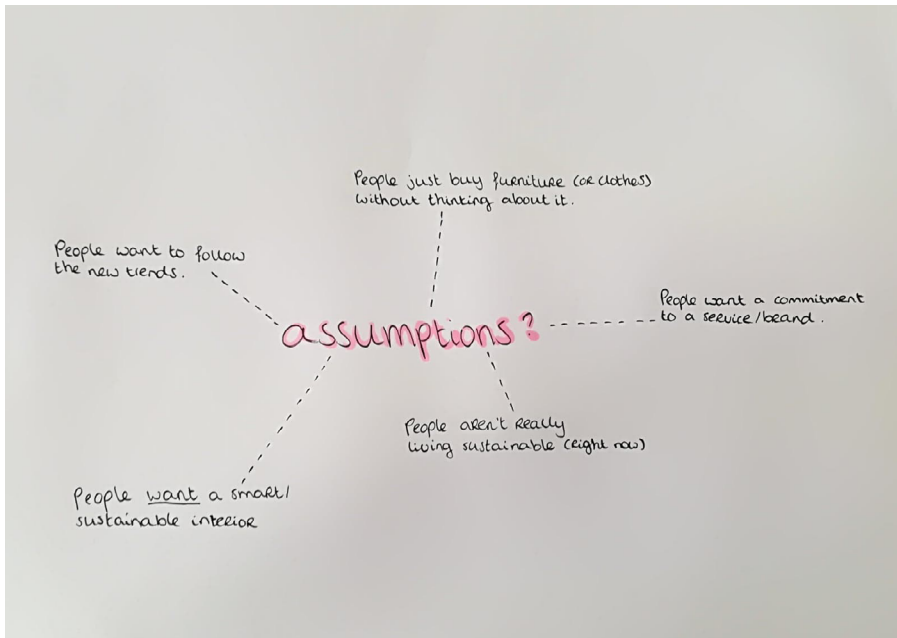 People just buy furniture (or clothes)
without thinking about it.
People want to follow
the new trends.
People want a commitment
to a service/brand.
assumptions?
People aren't really
living sustainable (right now)
People want a smart/
sustainable interior